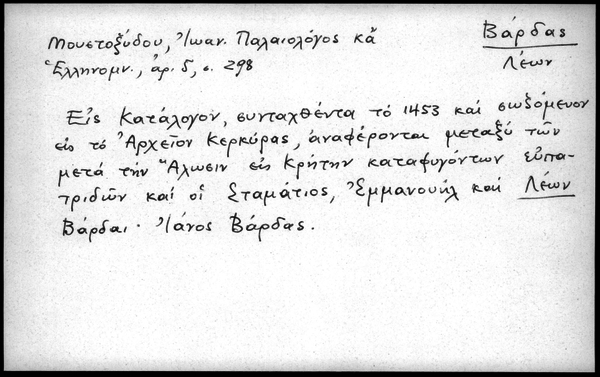 Μουστοξύδου, Ἰωαν. Παλαιολόγος κἄ
Ἑλληνομν., ἀρ. 5, σ. 298
Βάρδας
Λέων
Εἰς Κατάλογον, συνταχθέντα τό 1453 καί σωζόμενον
εἰς τό Ἀρχεῖον Κερκύρας, ἀναφέρονται μεταξύ τῶν
μετά τήν Ἅλωσιν εἰς Κρήτην καταφυγόντων εὐπα-
τριδῶν καί οἱ Σταμάτιος, Ἐμμανουήλ καί Λέων
Βάρδαι. Ἰάνος Βάρδας.